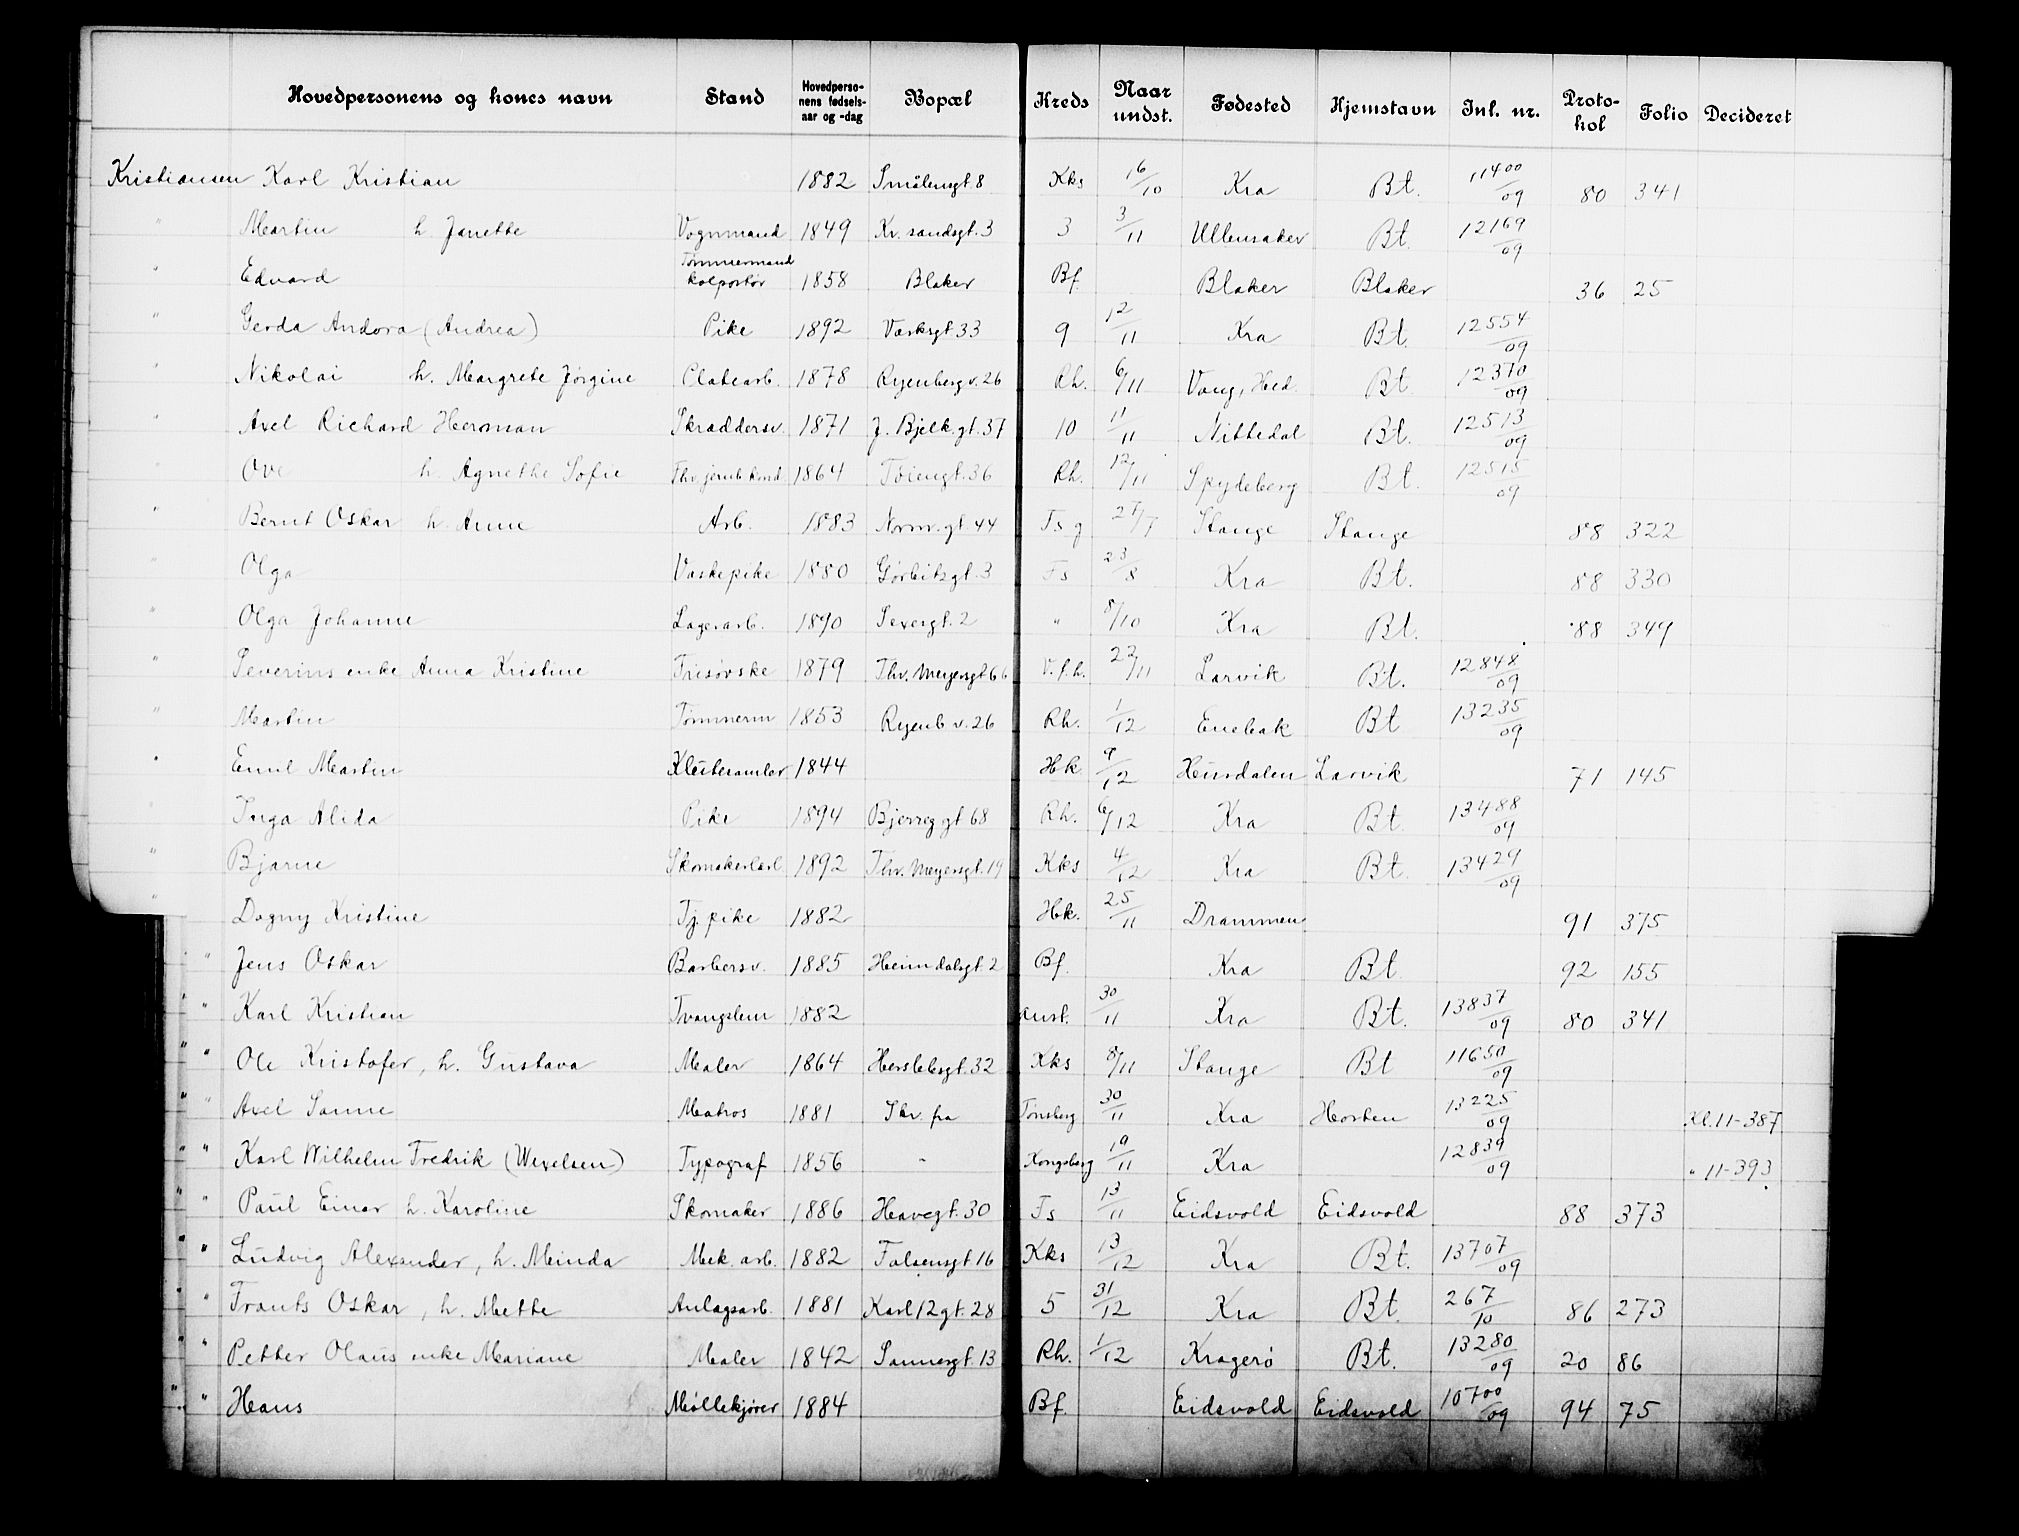 Hovedpersonens og kones navn Stand Hovedpersonens fødselsaar og -dag Bopæl Kreds Naar undst. Fødested Hjemstavn Inl. nr. Protokol Folio Decideret
Kristiansen Karl Kristian 1882 Smålensgt. 8 Kks 16/10 Kra Bt. 11400/09 80 341
" Martin h. Janette Vognmand 1849 Kr.sandsgt. 3 3 3/11 Ullensaker Bt. 12169/09
" Edvard Tømmermand kolportør 1858 Blaker Bf. Blaker Blaker 36 25
" Gerda Andora (Andrea) Pike 1892 Vaskegt 33 9 12/11 Kra Bt. 12554/09
" Nikolai h. Margrete Jørgine Platearb. 1878 Ryenberg v. 26 Rh. 6/11 Vang, Hed. Bt. 12370/09
" Axel Richard Herman Skræddersv. 1871 J. Bjelk.gt. 37 10 11/11 Nittedal Bt. 12513/09
" Ove h. Agnethe Sofie 1864 Tøiengt. 36 Rh. 12/11 Spydeberg Bt. 12515/09
" Bernt Oskar h. Anne Arb. 1883 Normgt 44 Fs g 27/7 Stange Stange 88 322
" Olga Vaskepike 1880 Gørbitzgt. 3 Fs 23/8 Kra Bt. 88 330
" Olga Johanne Lagerarb. 1890 Sexesgt. 2 " 8/10 Kra Bt. 88 349
" Severins enke Anna Kristine Frisørske 1879 Thv. Meyersgt 66 V.f.h. 22/11 Larvik Bt. 12848/09
" Martin Tømmerm 1853 Ryenb v. 26 Rh. 1/12 Enebak Bt 13235/09
" Emil Martin Klutesamler 1844 Hk 9/12 Hurdalen Larvik 71 145
" Inga Alida Pike 1894 Bjerreggt 68 Rh. 6/12 Kra Bt. 13488/09
" Bjarne Skomakerlærl. 1892 Thv. Meyersgt. 19 Kks 4/12 Kra Bt. 13429/09
" Dagny Kristine Tj. pike 1882 Hk. 25/11 Drammen 91 375
" Jens Oskar Barbersv. 1885 Heimdalsgt. 2 Bf. Kra Bt. 92 155
" Karl Kristian Tvangslem 1882 Aust. 30/11 Kra Bt. 13837/09 80 341
" Ole Kristofer, h. Gustava Maler 1864 Herslebsgt. 32 Kks 8/11 Stange Bt 11650/09
" Axel Sanne Matros 1881 Skr. fra Tønsberg 30/11 Kra Horten 13225/09 Kl. 11-387
" Karl Wilhelm Fredrik (Wexelsen) Typograf 1856 " Kongsberg 19/11 Kra 12839/09 " 11-393
" Paul Einar h. Karoline Skomaker 1886 Havegt. 30 Fs 13/11 Eidsvold Eidsvold 88 373
" Ludvig Alexander, h. Meinda Mek. arb. 1882 Falsensgt 16 Kks 13/12 Kra Bt. 13707/09
" Frants Oskar, h. Mette Anlagsarb. 1881 Karl 12 gt. 28 5 31/12 Kra Bt. 267/10 86 273
" Petter Olaus enke Mariane Maler 1842 Sannergt. 13 Rh. 1/12 Kragerø Bt. 13280/09 20 86
" " Hans Møllekjører 1884 Bf. Eidsvold Eidsvold 10700/09 94 75